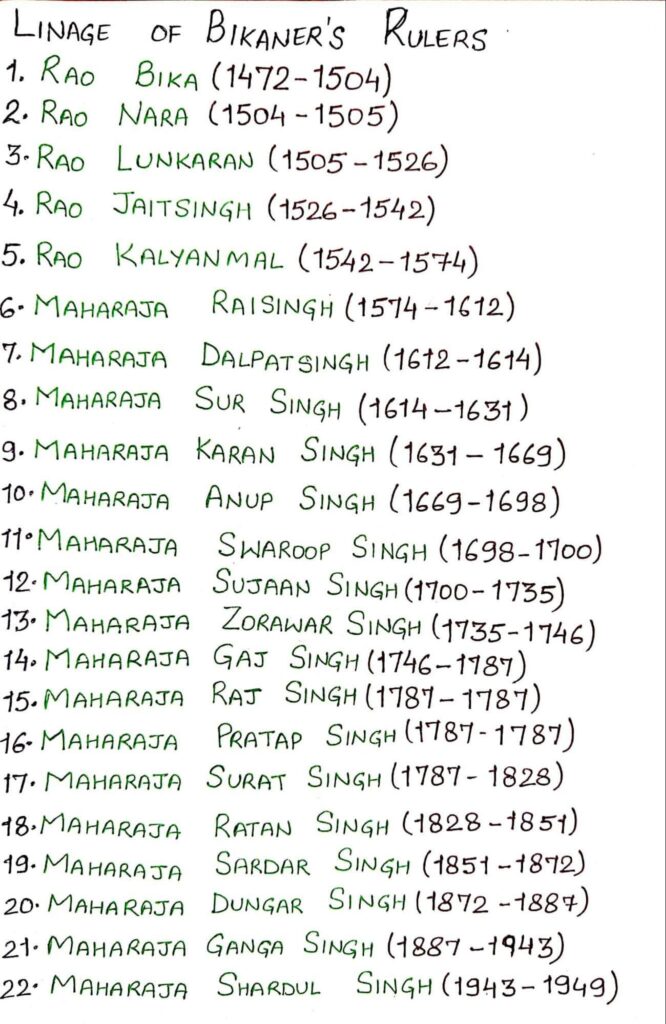 LINAGE OF BIKANER'S RULERS
1. RAO BIKA (1472-1504)
2. RAO NARA (1504-1505)
3. RAO LUNKARAN (1505-1526)
4. RAO JAITSINGH (1526-1542)
5. RAO KALYANMAL (1542-1574)
6. MAHARAJA RAISINGH (1574-1612)
7. MAHARAJA DALPATSINGH (1612-1614)
8. MAHARAJA SUR SINGH (1614-1631)
9. MAHARAJA KARAN SINGH (1631-1669)
10. MAHARAJA ANUP SINGH (1669-1698)
11. MAHARAJA SWAROOP SINGH (1698-1700)
12. MAHARAJA SUJAAN SINGH (1700-1735)
13. MAHARAJA ZORAWAR SINGH (1735-1746)
14. MAHARAJA GAJ SINGH (1746-1787)
15. MAHARAJA RAJ SINGH (1787-1787)
16. MAHARAJA PRATAP SINGH (1787-1787)
17. MAHARAJA SURAT SINGH (1787-1828)
18. MAHARAJA RATAN SINGH (1828-1851)
19. MAHARAJA SARDAR SINGH (1851-1872)
20. MAHARAJA DUNGAR SINGH (1872-1887)
21. MAHARAJA GANGA SINGH (1887-1943)
22. MAHARAJA SHARDUL SINGH (1943-1949)